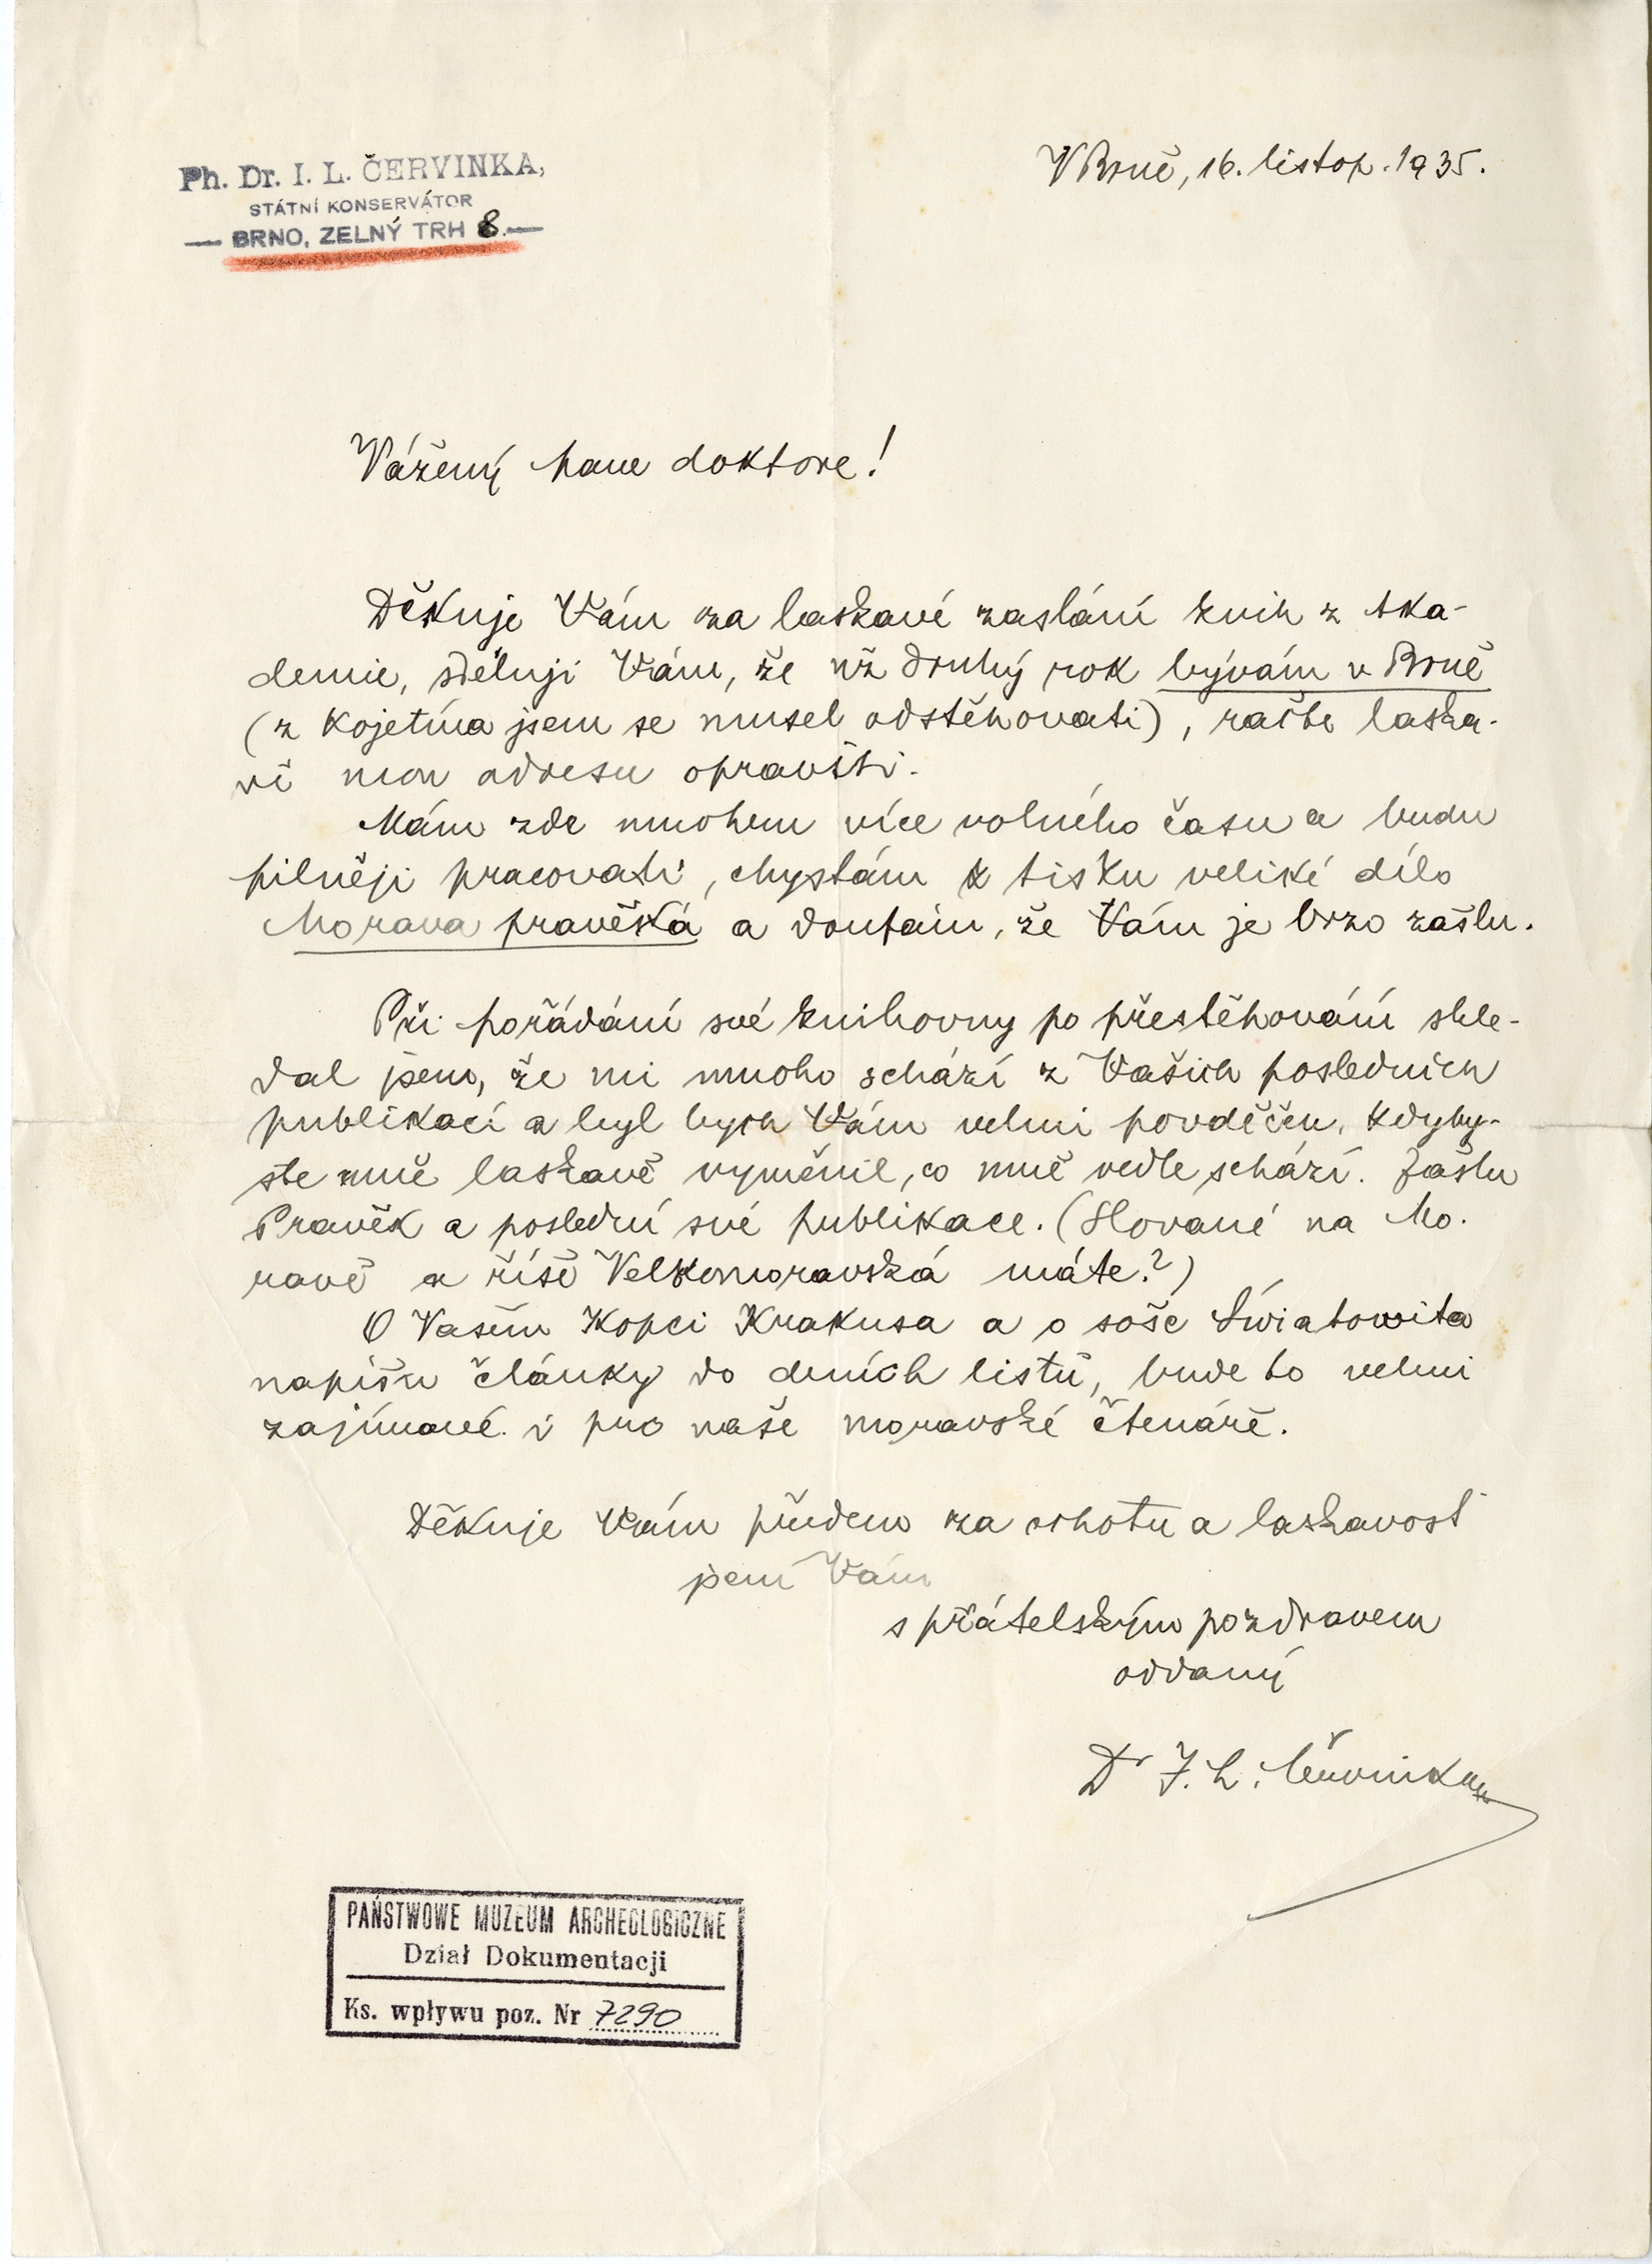 Ph. Dr. I. L. ČERVINKA,
STÁTNÍ KONSERVÁTOR
— BRNO, ZELNÝ TRH 8. —
V Brně, 16. listop. 1935.
Vážený pane doktore!
Děkuje Vám za laskavé zaslání knih z Aka-
demie, sděluji Vám, že už druhý rok bývám v Brně
(z Kojetína jsem se musel odstěhovati), račte laska-
vě mou adresu opraviti.
Mám zde mnohem více volného času a budu
pilněji pracovati, chystám k tisku veliké dílo
Morava pravěká a doufám, že Vám je brzo zašlu.
Při pořádání své knihovny po přestěhování shle-
dal jsem, že mi mnoho schází z Vašich posledních
publikací a byl bych Vám velmi povděčen, kdyby-
ste mně laskavě vyměnil, co mně vedle schází. Zašlu
Pravěk a poslední své publikace. (Slované na Mo-
ravě a říše Velkomoravská máte?)
O Vašem Kopci Krakusa a o soše Światowita
napíšu články do deních listů, bude to velmi
zajímavé i pro naše moravské čtenáře.
Děkuje Vám předem za ochotu a laskavost
jsem Vám
s přátelským pozdravem
oddaný
Dr I. L. Červinka
PAŃSTWOWE MUZEUM ARCHEOLOGICZNE
Dział Dokumentacji
Ks. wpływu poz. Nr 7290